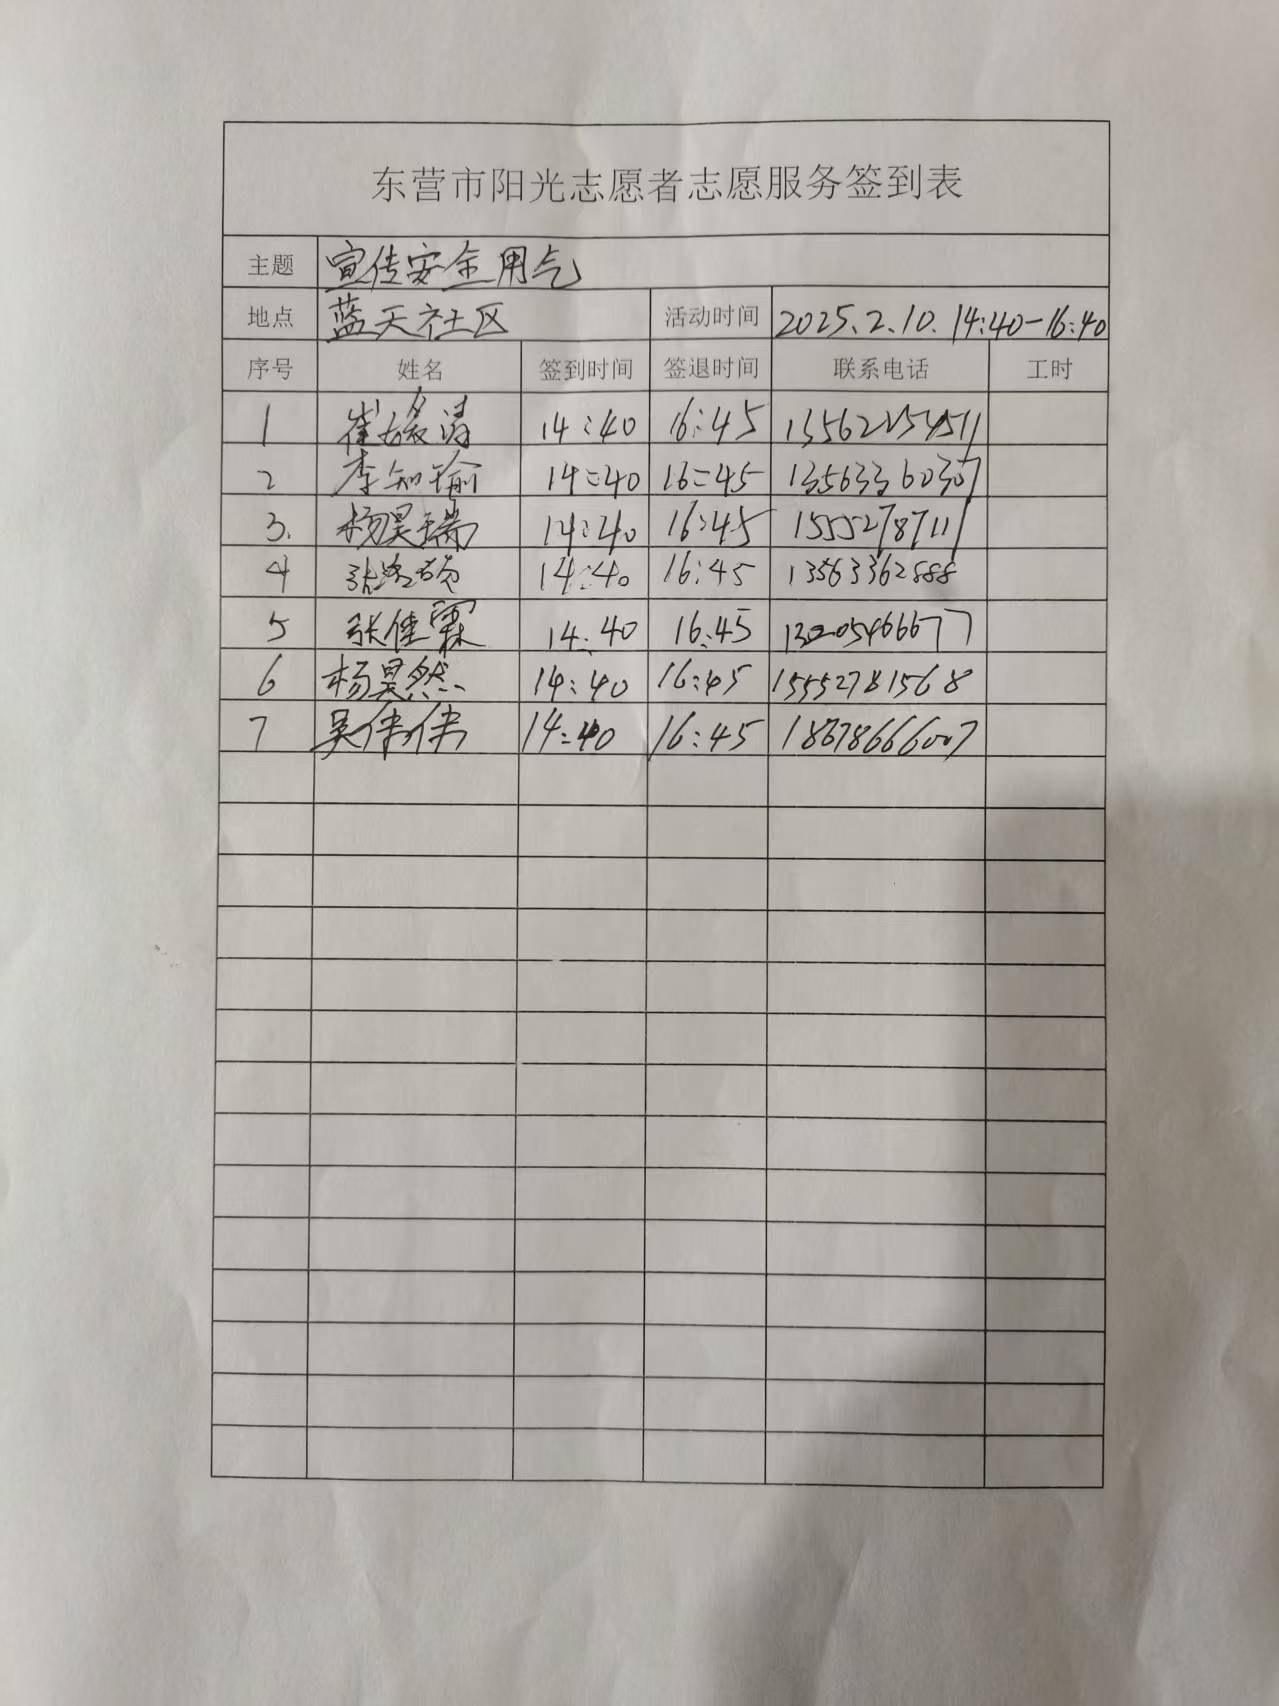 东营市阳光志愿者志愿服务签到表
主题 宣传安全用气
地点 蓝天社区 活动时间 2025.2.10. 14:40-16:40
序号 姓名 签到时间 签退时间 联系电话 工时
1 14:40 16:45
2 李知瑜 14:40 16:45 13563360307
3. 杨昊瑞 14:40 16:45 15552787111
4 14:40 16:45 13563362888
5 张佳霖 14.40 16.45 13205466677
6 杨昊然 14:40 16:45 15552781568
7 吴伟伟 14:40 16:45 18678666007